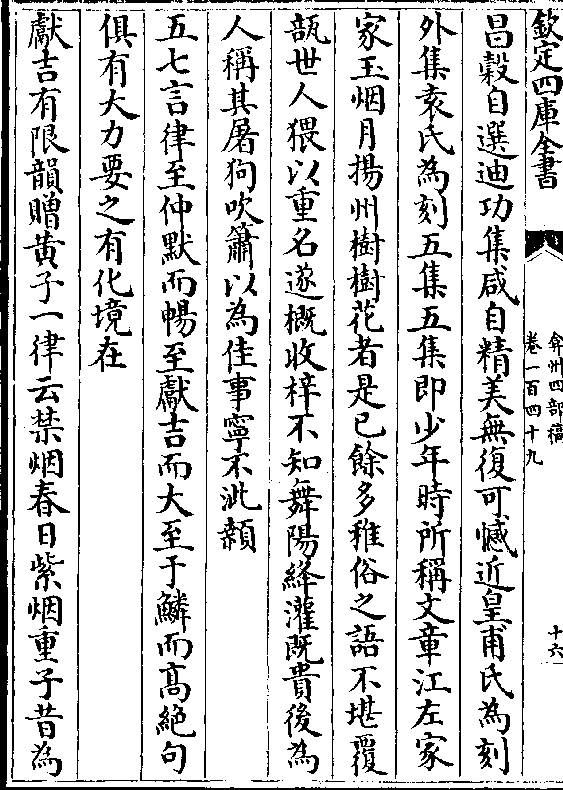 欽定四庫全書
弇州四部稿
卷一百四十九
十六
昌穀自選迪功集咸自精美無復可憾近皇甫氏為刻
外集袁氏為刻五集五集即少年時所稱文章江左家
家玉烟月揚州樹樹花者是已餘多稚俗之語不堪覆
瓿世人猥以重名遂概收梓不知舞陽絳灌既貴後為
人稱其屠狗吹簫以為佳事寧不泚顙
五七言律至仲默而暢至獻吉而大至于鱗而高絶句
俱有大力要之有化境在
獻吉有限韻贈黄子一律云禁烟春日紫烟重子昔為